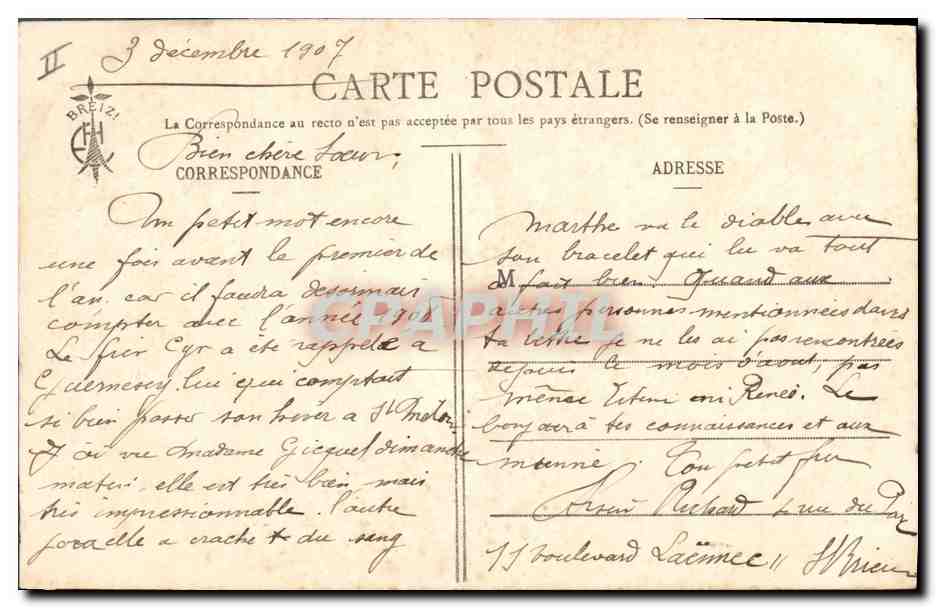 II
3 décembre 1907
CARTE POSTALE
BREIZ!
La Correspondance au recto n'est pas acceptée par tous les pays étrangers. (Se renseigner à la Poste.)
Bien chère Soeur,
CORRESPONDANCE
Un petit mot encore
une fois avant le premier de
l'an car il faudra desormais
compter avec l'année 1908.
Le frère Cyr a été rappelé à
Guernesey, lui qui comptait
si bien passer son hiver à St
J ai vu Madame Gicquel dimanche
matin. elle est très bien mais
très impressionnable. l'autre
elle a craché du sang
ADRESSE
Marthe va le diable avec
son bracelet qui lui va tout
M
à fait bien. Quand aux
autres personnes mentionnées dans
ta lettre je ne les ai pas rencontrées
depuis le mois d'aout, pas
même ni René. Le
bonjour à tes connaissances et aux
miennes. Ton petit frère
Richard rue du Parc
11 boulevard Laënnec " St Brieuc
CPAPHIL